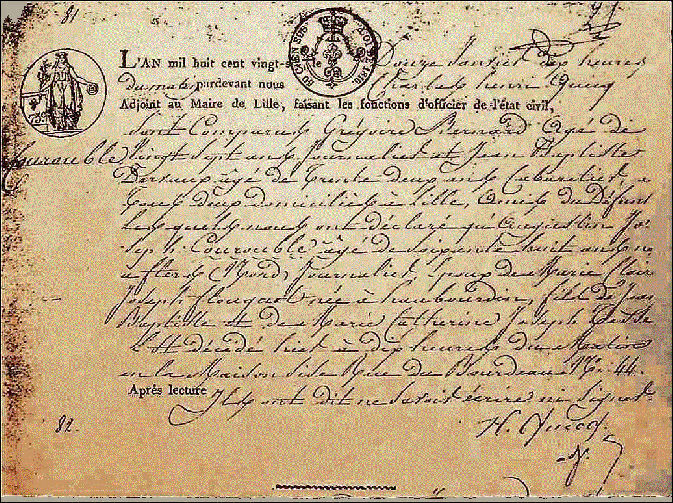 81
L'AN mil huit cent vingt-s le Douze Janvier dix heures
du matin pardevant nous Charles henri Cucq
Adjoint au Maire de Lille, faisant les fonctions d'officier de l'état civil,
sont Comparus Grégoire Bernard agé de
Courouble vingt sept ans Journalier et Jean Baptiste
agé de trente deux ans Cabaretier
tous deux domiciliés à Lille, amis du Défunt
Lesquels nous ont déclaré qu'Augustin Jo-
seph Courouble âgé de soixante huit ans né
à flers (Nord) Journalier, Epoux de Marie Claire
Joseph née à haubourdin, fils de Jean
Baptiste et de Marie Catherine Joseph
Est décédé hier à dix heures du Matin
en la Maison sise Rue du Bourdeau N° 44.
Après lecture Ils ont dit ne savoir écrire ni signer
82.